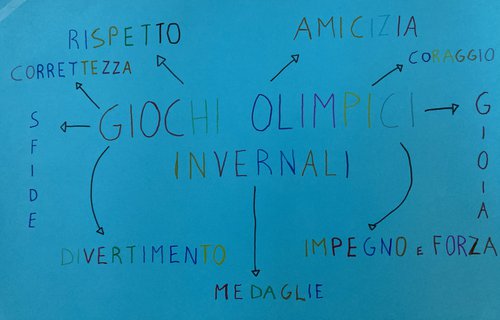 RISPETTO
AMICIZIA
CORRETTEZZA
CORAGGIO
SFIDE
GIOCHI OLIMPICI
INVERNALI
GIOIA
DIVERTIMENTO
IMPEGNO E FORZA
MEDAGLIE